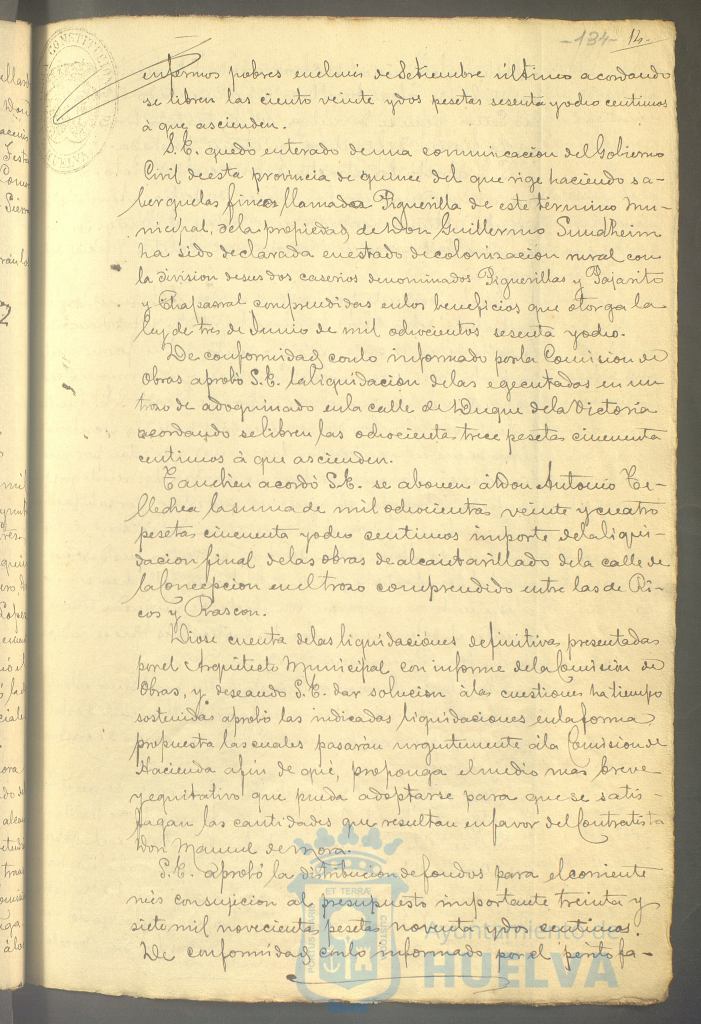 -134- 14-
enfermos pobres en el mes de Setiembre último acordando
se libren las ciento veinte y dos pesetas sesenta y ocho centimos
á que ascienden.
S.E. quedó enterado de una comunicacion del Gobierno
Civil de esta provincia de quince del que rige haciendo sa-
ber que las fincas llamadas Piguerilla de este término mu-
nicipal, de la propiedad de Don Guillermo Sundheim
ha sido declarada en estado de colonizacion rural con
la division de sus dos caserios denominados Piguerillas y Pajarito
y Chaparral comprendidas en los beneficios que otorga la
ley de tres de Junio de mil ochocientos sesenta y ocho.
De conformidad con lo informado por la Comision de
Obras aprobó S.E. la liquidacion de las egecutadas en un
trozo de adoquinado en la calle de Duque de la Victoria
acordando se libren las ochocientas trece pesetas cincuenta
centimos á que ascienden.
Tambien acordó S.E. se abonen á Don Antonio Te-
llechea la suma de mil ochocientas veinte y cuatro
pesetas cincuenta y ocho centimos importe de la liqui-
dacion final de las obras de alcantarillado de la calle de
la Concepcion en el trozo comprendido entre las de Ri-
cos y Rascon.
Diose cuenta de las liquidaciones definitivas presentadas
por el Arquitecto Municipal con informe de la Comision de
Obras, y deseando S.E. dar solucion á las cuestiones ha tiempo
sostenidas aprobó las indicadas liquidaciones en la forma
propuesta las cuales pasarán urgentemente á la Comision de
Hacienda afin de que, proponga el medio mas breve
y equitativo que pueda adoptarse para que se satis-
fagan las cantidades que resultan en favor del Contratista
Don Manuel de Mora.
S.E. aprobó la distribucion de fondos para el corriente
mes con sujecion al presupuesto importante treinta y
siete mil novecientas pesetas noventa y dos centimos.
De conformidad con lo informado por el perito fa-
Ayuntamiento de
HUELVA